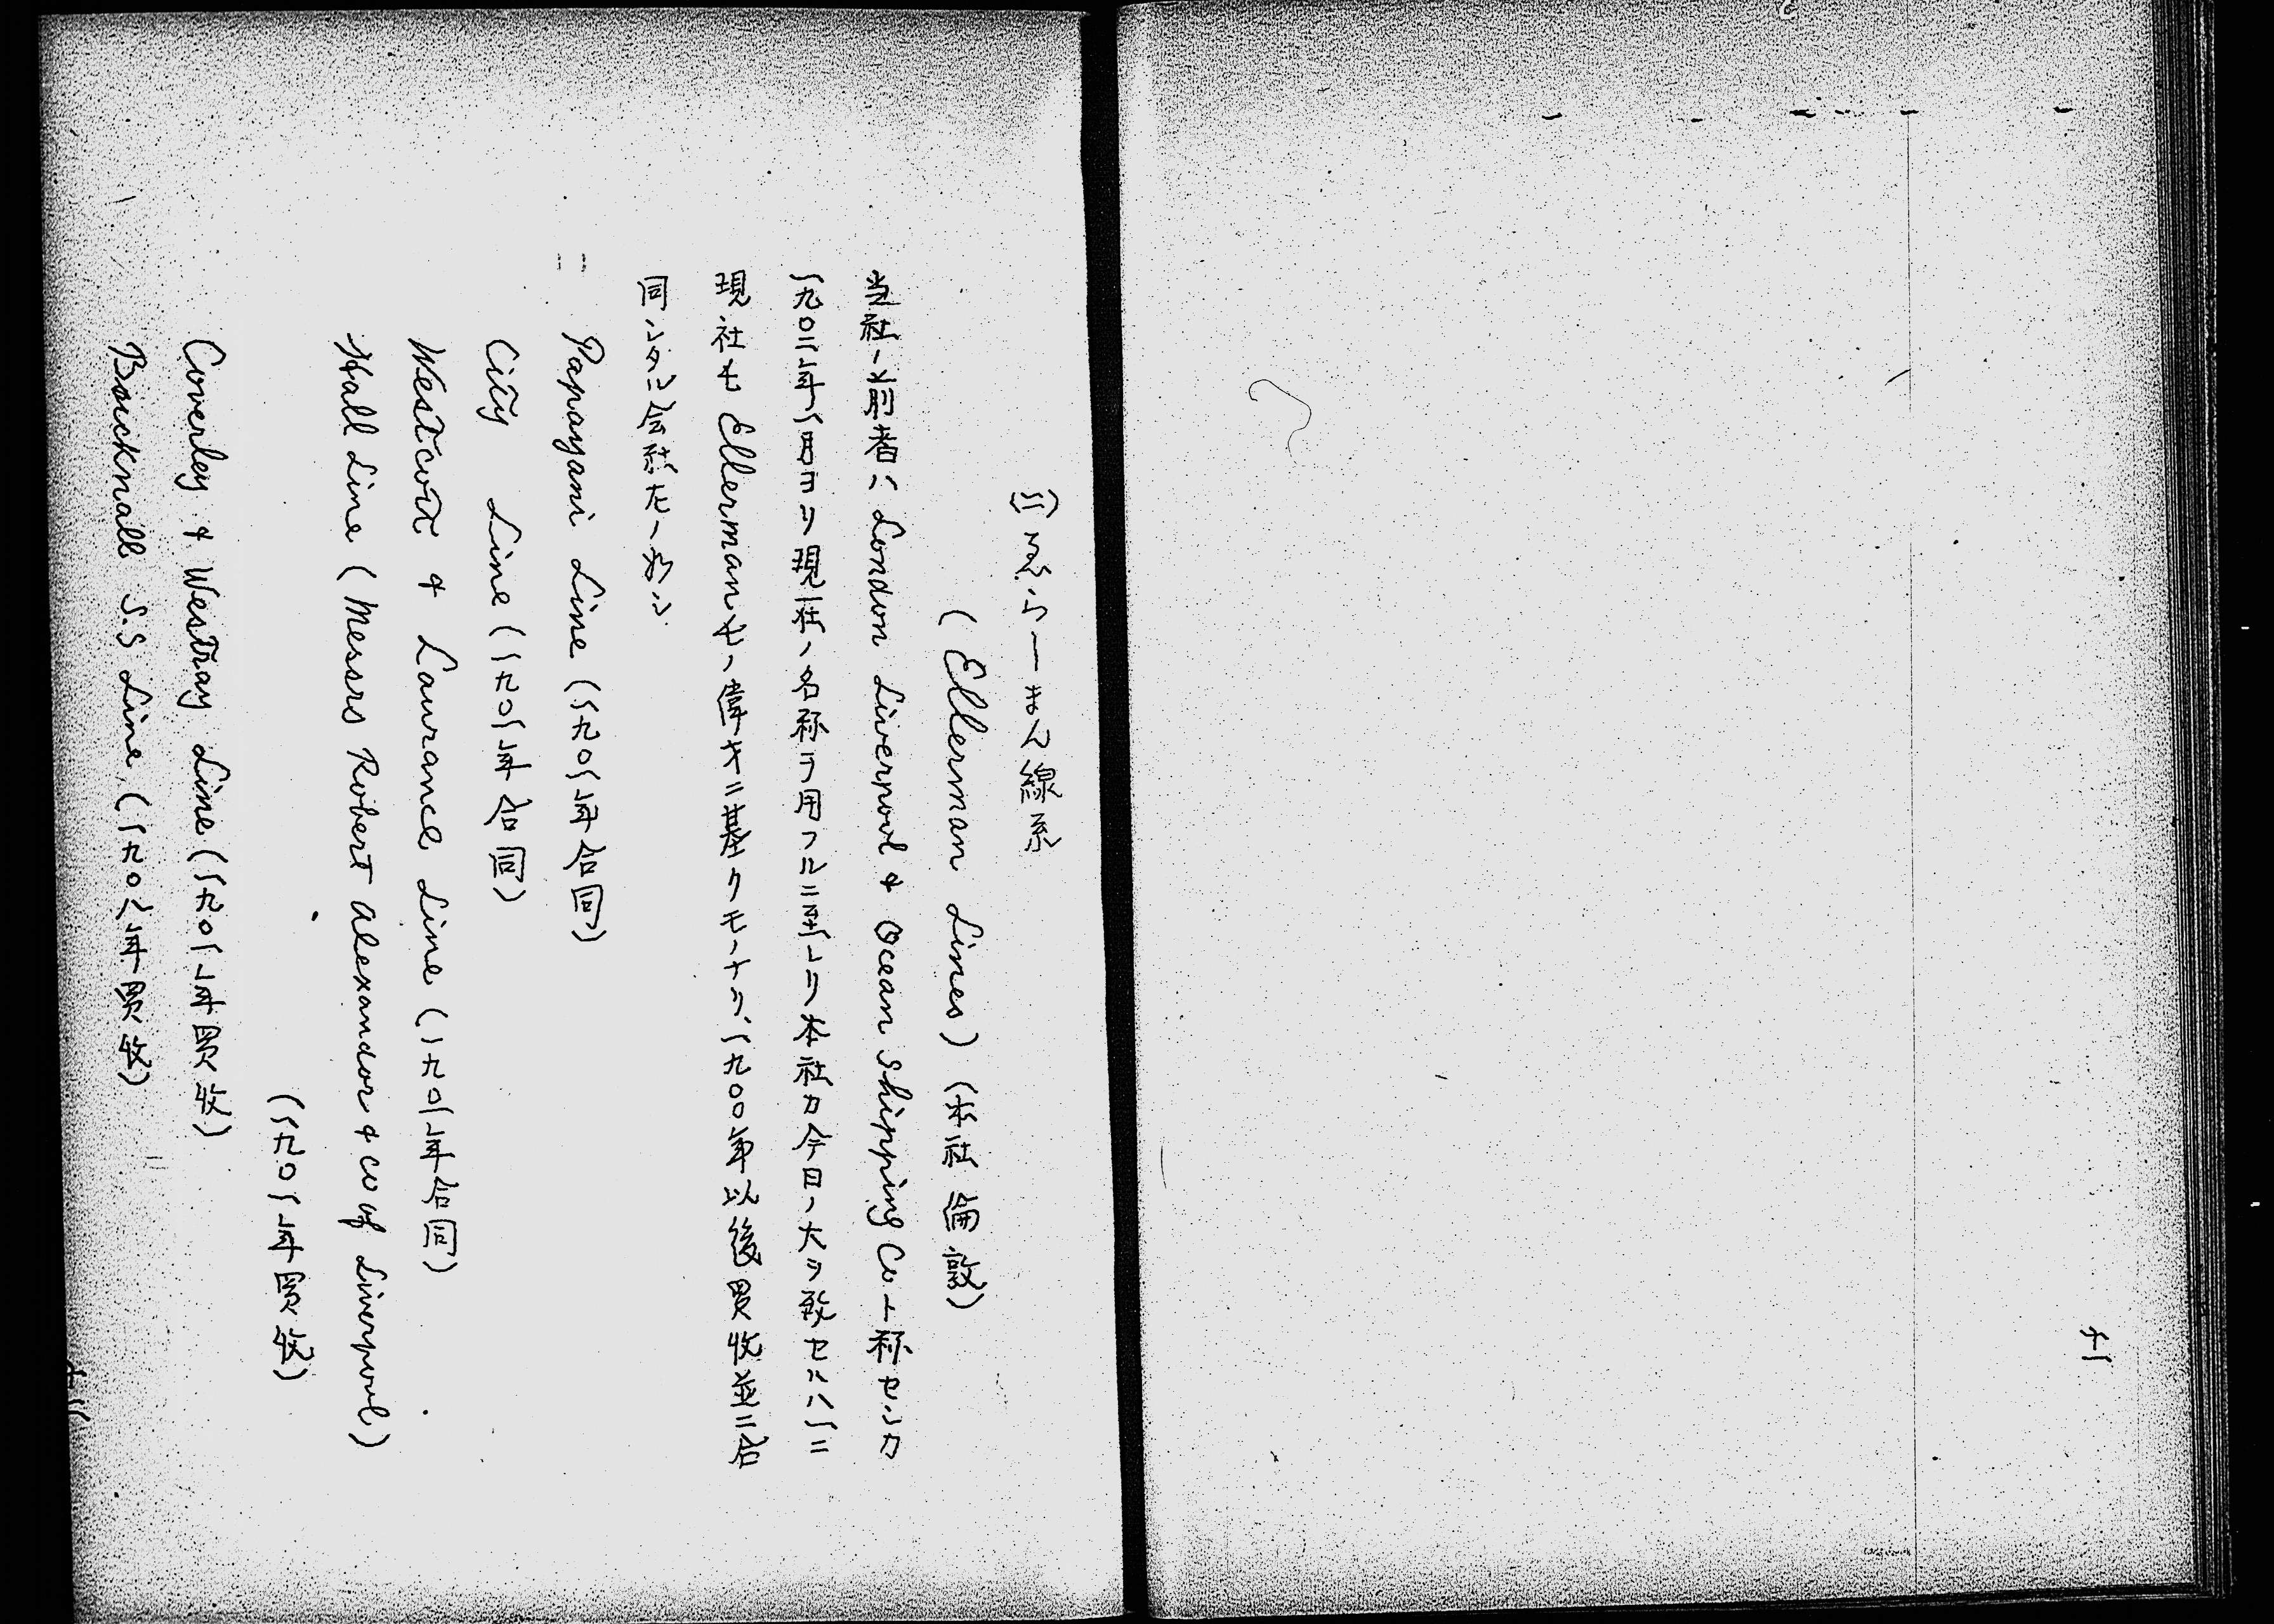 十一
(二) ゑらーまん線系
(Ellerman Lines) (本社倫敦)
当社ノ前者ハ London Liverpool & Ocean Shipping Co ト称セシカ
一九〇二年一月ヨリ現社ノ名称ヲ用フルニ至レリ本社カ今日ノ大ヲ致セルハ一ニ
現社長 Ellerman 氏ノ偉才ニ基クモノナリ、一九〇〇年以後買收並ニ合
同シタル会社左ノ如シ
Papayani Line (一九〇一年合同)
City Line (一九〇一年合同)
Westcott & Laurance Line (一九〇一年合同)
Hall Line (Messrs Robert Alexandor & Co of Liverpool)
(一九〇一年買收)
Coverley & Westray Line (一九〇一年買收)
Boucknall S.S Line (一九〇八年買收)